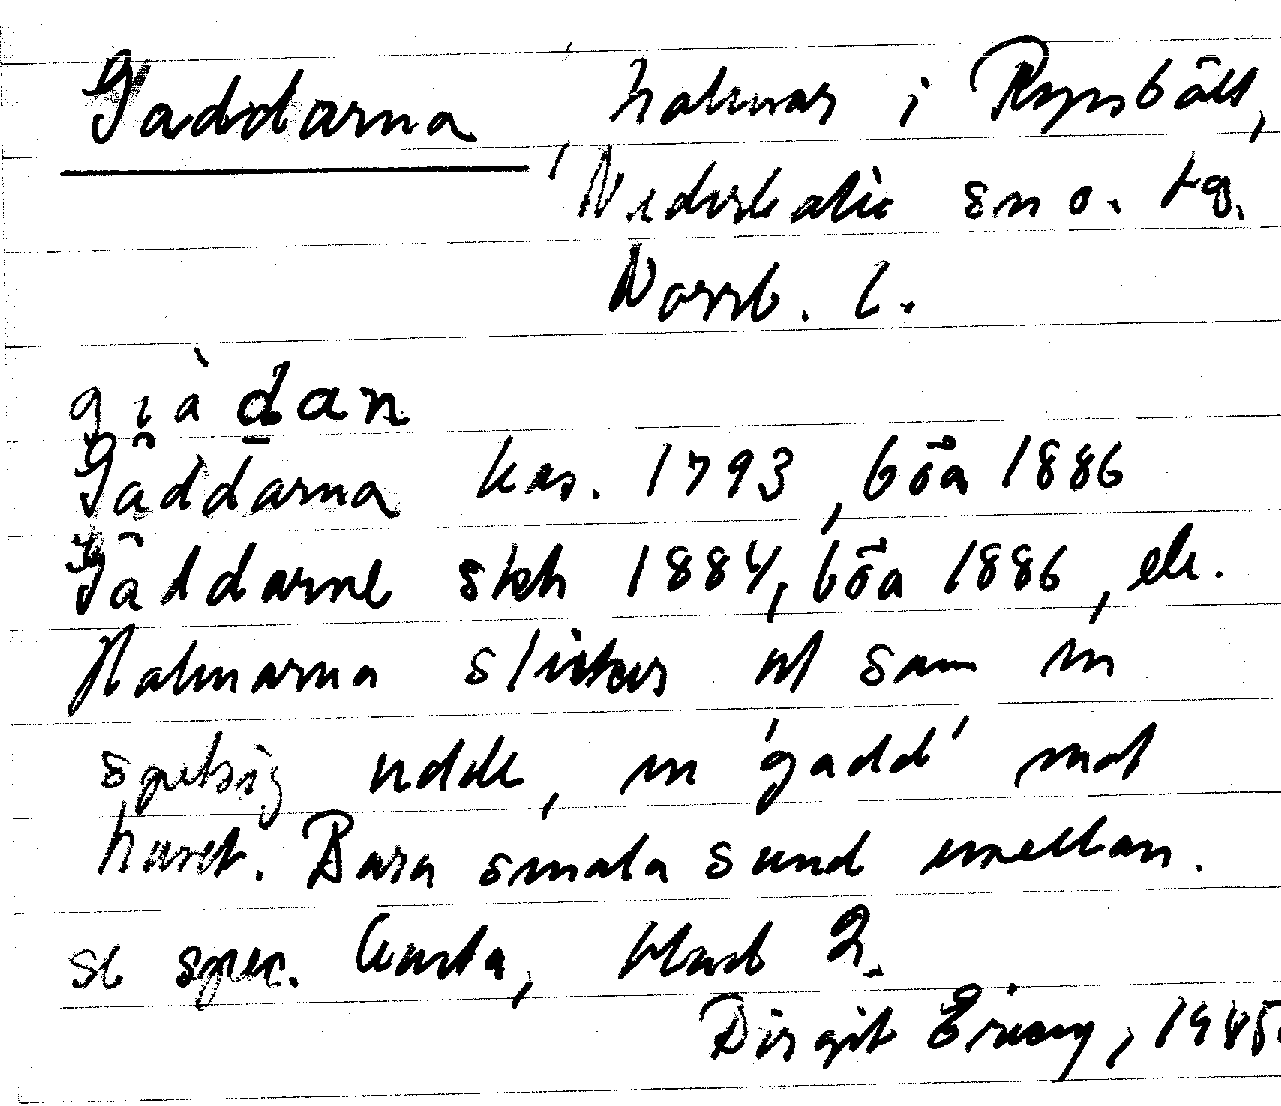 Gaddarna, holmar i Ryssbält,
Nederkalix sn o. tg.
Norrb. l.
giàdan
Gäddarna kas. 1793, böa 1886
Gäddarne skh 1884, böa 1886, ek.
Holmarna sticker ut som en
spetsig udde, en 'gadd' mot
havet. Bara smala sund emellan.
se spec. karta, blad 2.
Birgit Ericy, 1985.